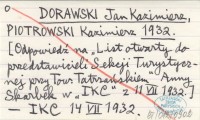 DORAWSKI Jan Kazimierz,
PIOTROWSKI Kazimierz 1932.
[Odpowiedź na „List otwarty do
przedstawicieli Sekcji Turystycz-
nej przy Tow. Tatrzańskim" Anny
Skarbek w „IKC" z 11 VII 1932]
— IKC 14 VII 1932.